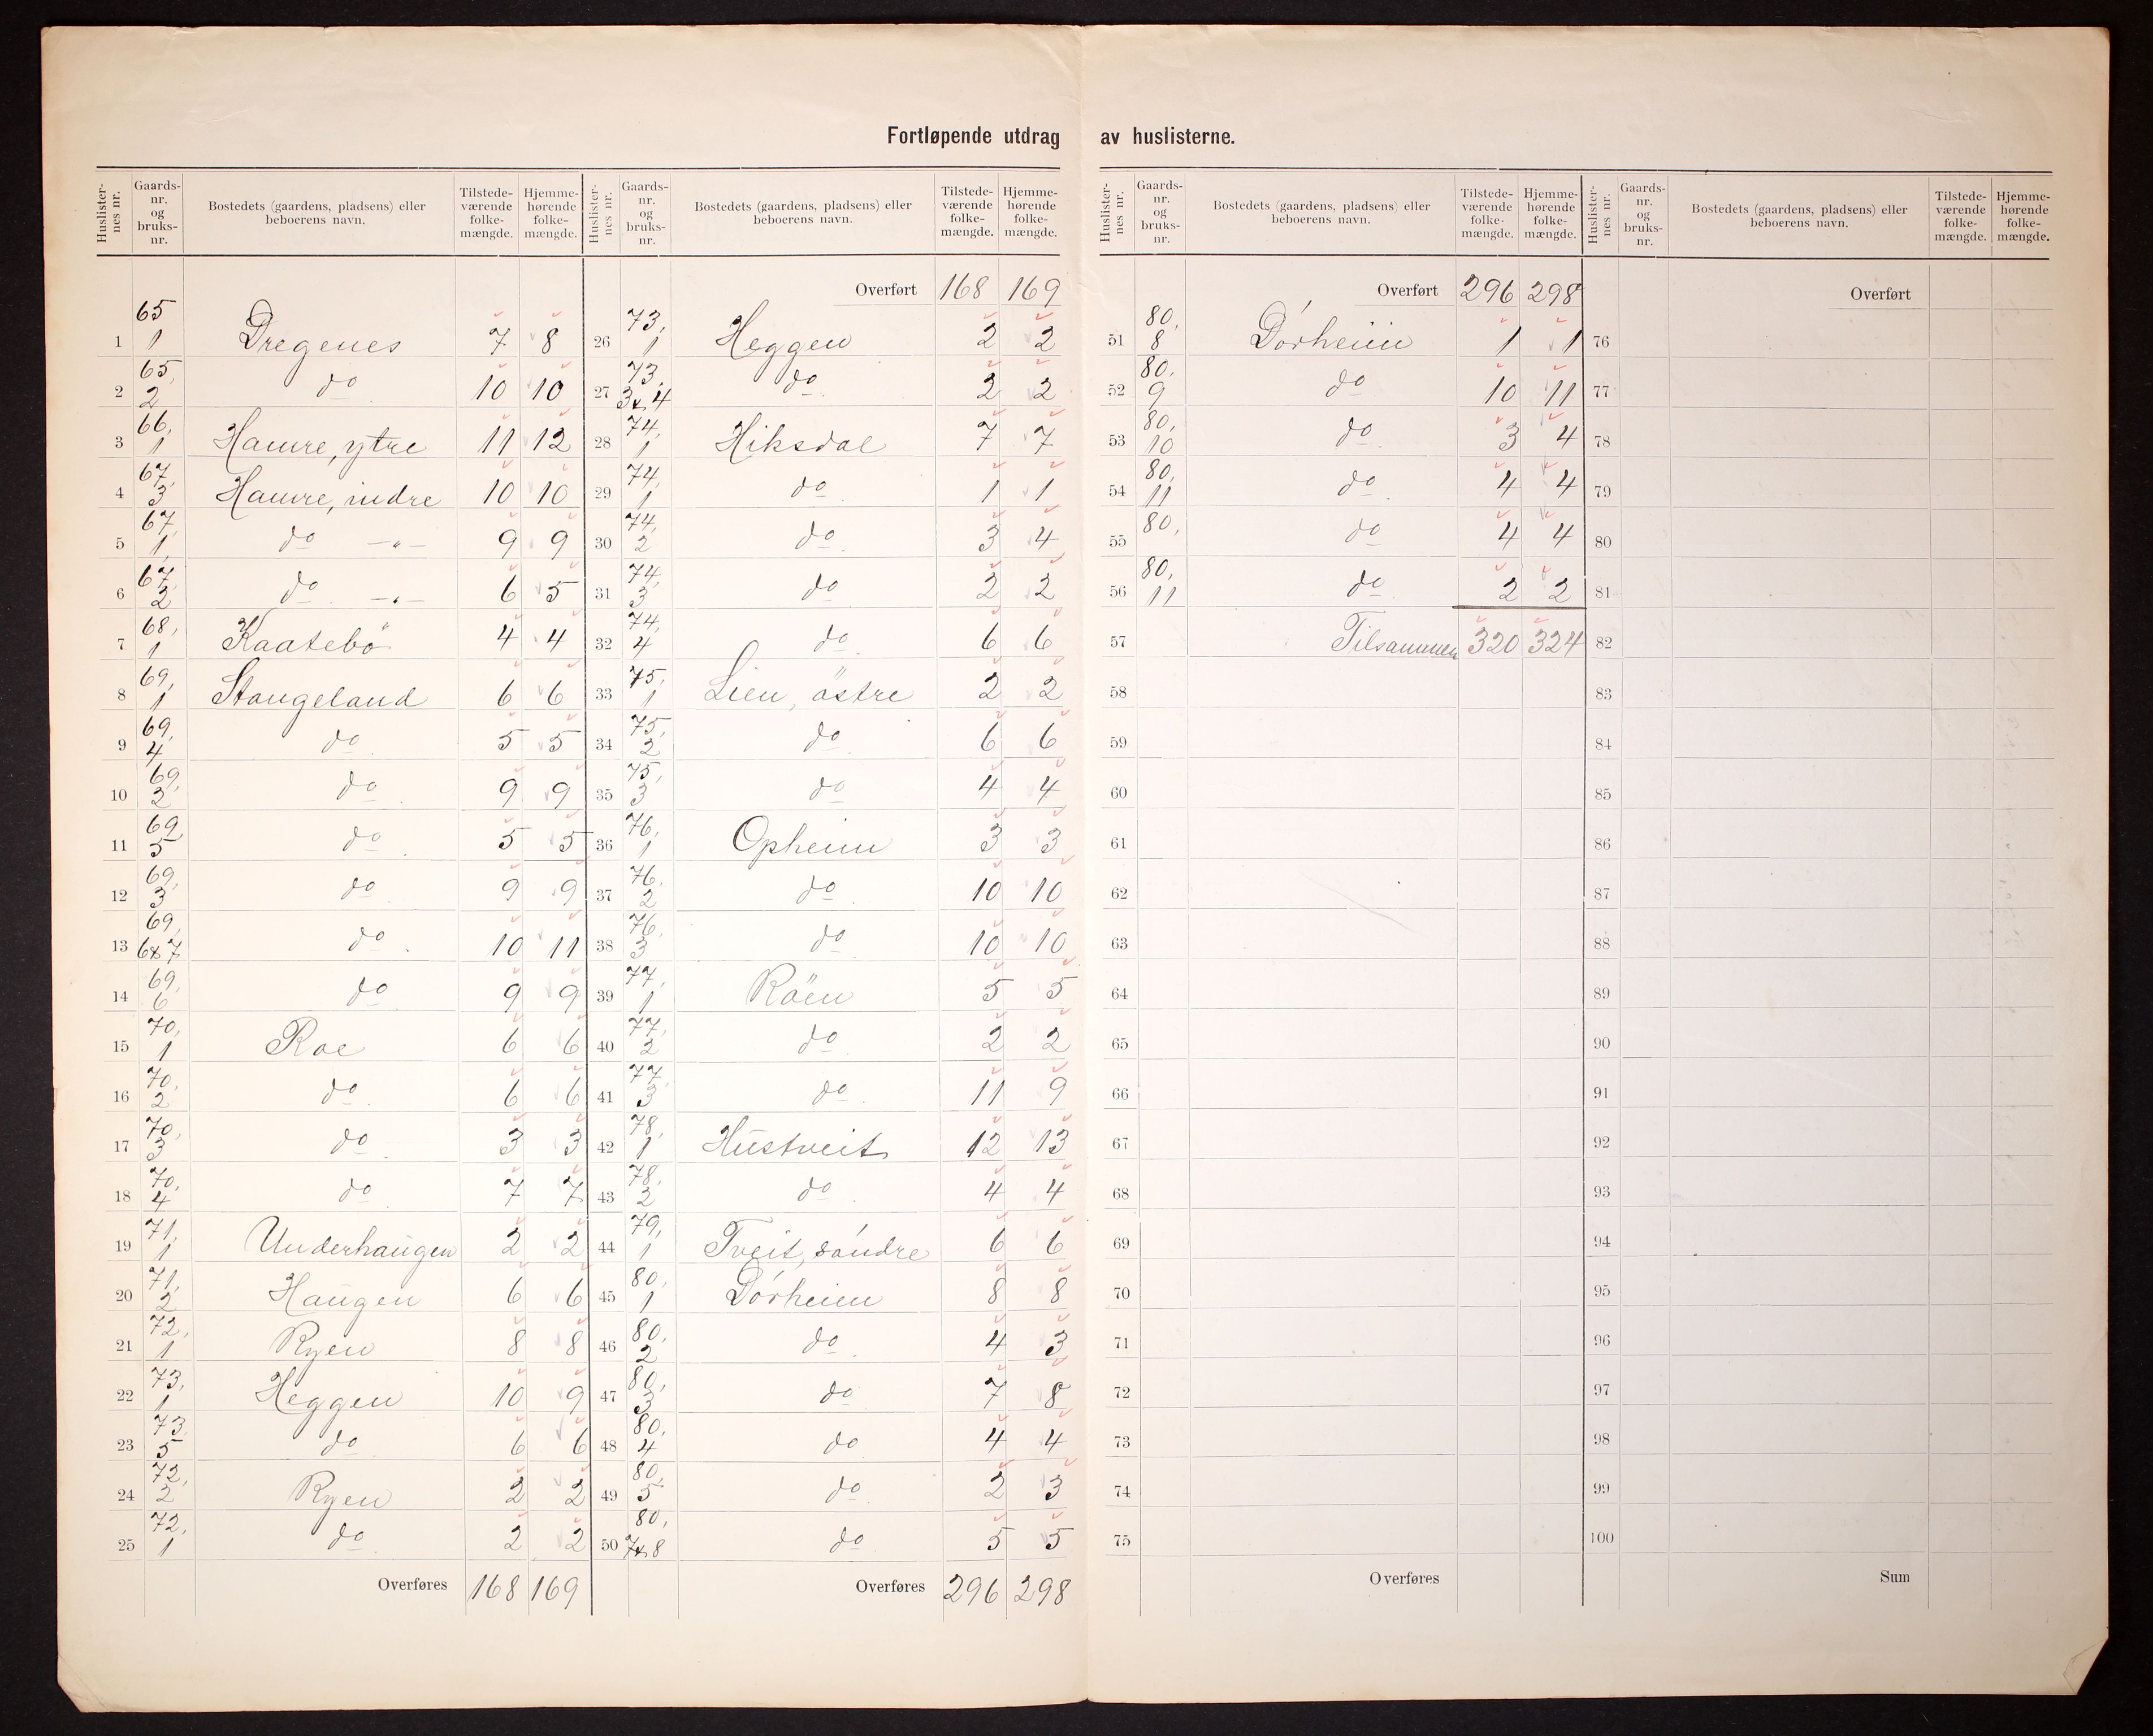 Fortløpende utdrag av huslisterne.
Huslisternes nr. | Gaards-nr. og bruks-nr. | Bostedets (gaardens, pladsens) eller beboerens navn. | Tilstede-værende folke-mængde. | Hjemme-hørende folke-mængde.
1 65 1 Dregenes 7 8
2 65, 2 do 10 10
3 66, 1 Hamre, ytre 11 12
4 67, 3 Hamre, indre 10 10
5 67, 1 do -"- 9 9
6 67, 2 do -"- 6 5
7 68, 1 Kaatebö 4 4
8 69, 1 Stangeland 6 6
9 69, 4 do 5 5
10 69, 2 do 9 9
11 69 5 do 5 5
12 69, 3 do 9 9
13 69, 6&7 do 10 11
14 69, 6 do 9 9
15 70, 1 Roe 6 6
16 70, 2 do 6 6
17 70, 3 do 3 3
18 70, 4 do 7 7
19 71, 1 Underhaugen 2 2
20 71, 2 Haugen 6 6
21 72, 1 Ryen 8 8
22 73, 1 Heggen 10 9
23 73, 5 do 6 6
24 72, 2 Ryen 2 2
25 72, 1 do 2 2
Overføres 168 169
Huslisternes nr. | Gaards-nr. og bruks-nr. | Bostedets (gaardens, pladsens) eller beboerens navn. | Tilstede-værende folke-mængde. | Hjemme-hørende folke-mængde.
Overført 168 169
26 73, 1 Heggen 2 2
27 73, 3&4 do 2 2
28 74, 1 Hiksdal 7 7
29 74, 1 do 1 1
30 74, 2 do 3 4
31 74, 3 do 2 2
32 74, 4 do 6 6
33 75, 1 Lien, östre 2 2
34 75, 2 do 6 6
35 75, 3 do 4 4
36 76, 1 Opheim 3 3
37 76, 2 do 10 10
38 76, 3 do 10 10
39 77, 1 Röen 5 5
40 77, 2 do 2 2
41 77, 3 do 11 9
42 78, 1 Hustveit 12 13
43 78, 2 do 4 4
44 79, 1 Tveit, söndre 6 6
45 80, 1 Dörheim 8 8
46 80, 2 do 4 3
47 80, 3 do 7 8
48 80, 4 do 4 4
49 80, 5 do 2 3
50 80, 7&8 do 5 5
Overføres 296 298
Huslisternes nr. | Gaards-nr. og bruks-nr. | Bostedets (gaardens, pladsens) eller beboerens navn. | Tilstede-værende folke-mængde. | Hjemme-hørende folke-mængde.
Overført 296 298
51 80, 8 Dörheim 1 1
52 80, 9 do 10 11
53 80, 10 do 3 4
54 80, 11 do 4 4
55 80, do 4 4
56 80, 11 do 2 2
57 Tilsammen 320 324
58
59
60
61
62
63
64
65
66
67
68
69
70
71
72
73
74
75
Overføres
Huslisternes nr. | Gaards-nr. og bruks-nr. | Bostedets (gaardens, pladsens) eller beboerens navn. | Tilstede-værende folke-mængde. | Hjemme-hørende folke-mængde.
Overført
76
77
78
79
80
81
82
83
84
85
86
87
88
89
90
91
92
93
94
95
96
97
98
99
100
Sum